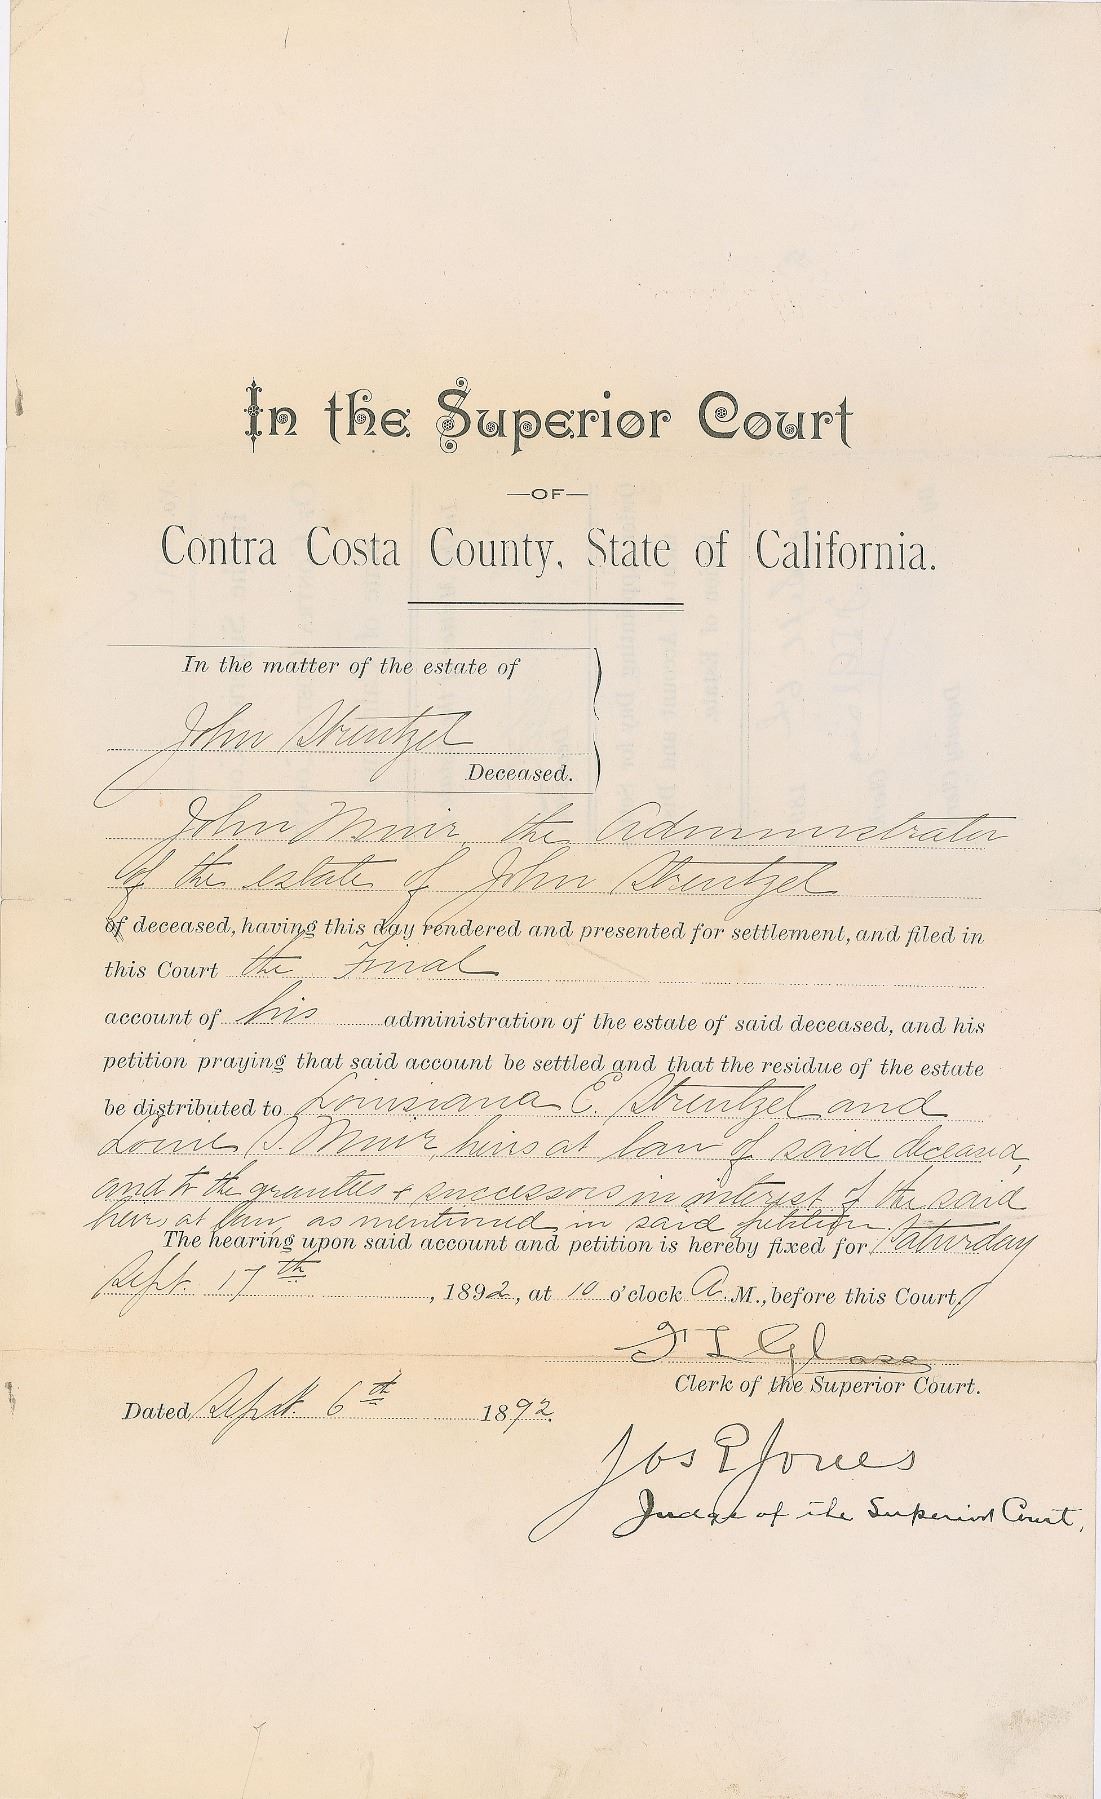 In the Superior Court
—OF—
Contra Costa County, State of California.
In the matter of the estate of
John Strentzel
Deceased.
John Muir, the Administrator
of the estate of John Strentzel
of deceased, having this day rendered and presented for settlement, and filed in
this Court the Final
account of his administration of the estate of said deceased, and his
petition praying that said account be settled and that the residue of the estate
be distributed to Louisiana E. Strentzel and
Louie S. Muir, heirs at law of said deceased,
and to the grantees & successors in interest of the said
heirs at law, as mentioned in said petition.
The hearing upon said account and petition is hereby fixed for Saturday
Sept. 17th, 1892, at 10 o'clock A.M., before this Court,
F L Glass
Clerk of the Superior Court.
Dated Sept. 6th 1892.
Jos P Jones
Judge of the Superior Court.